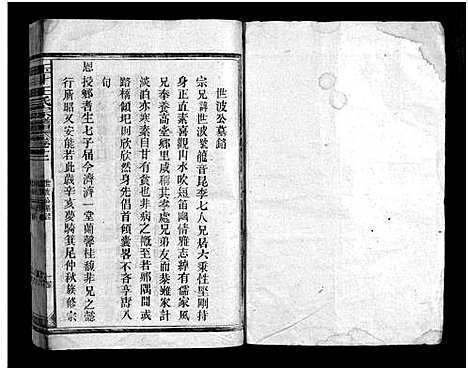 世波公墓銘
宗兄諱世波號龍音昆季七人兄居六秉性堅剛持
身正直素喜觀山水吹短笛幽情雅志綽有儒家風
兄奉養高堂鄉里咸稱其孝處兄弟友而恭雖家計
淡泊亦寒素自甘有貧也非病之慨至若鄉隅間或
路橋傾圮則欣欣然身先倡首傾囊畧不吝享壽八
旬
恩授鄉耆生七子屆今濟濟一堂蘭馨桂馥非兄之懿
行庸昭又安能若此哉辛亥夔騎箕尾仲秋族修宗